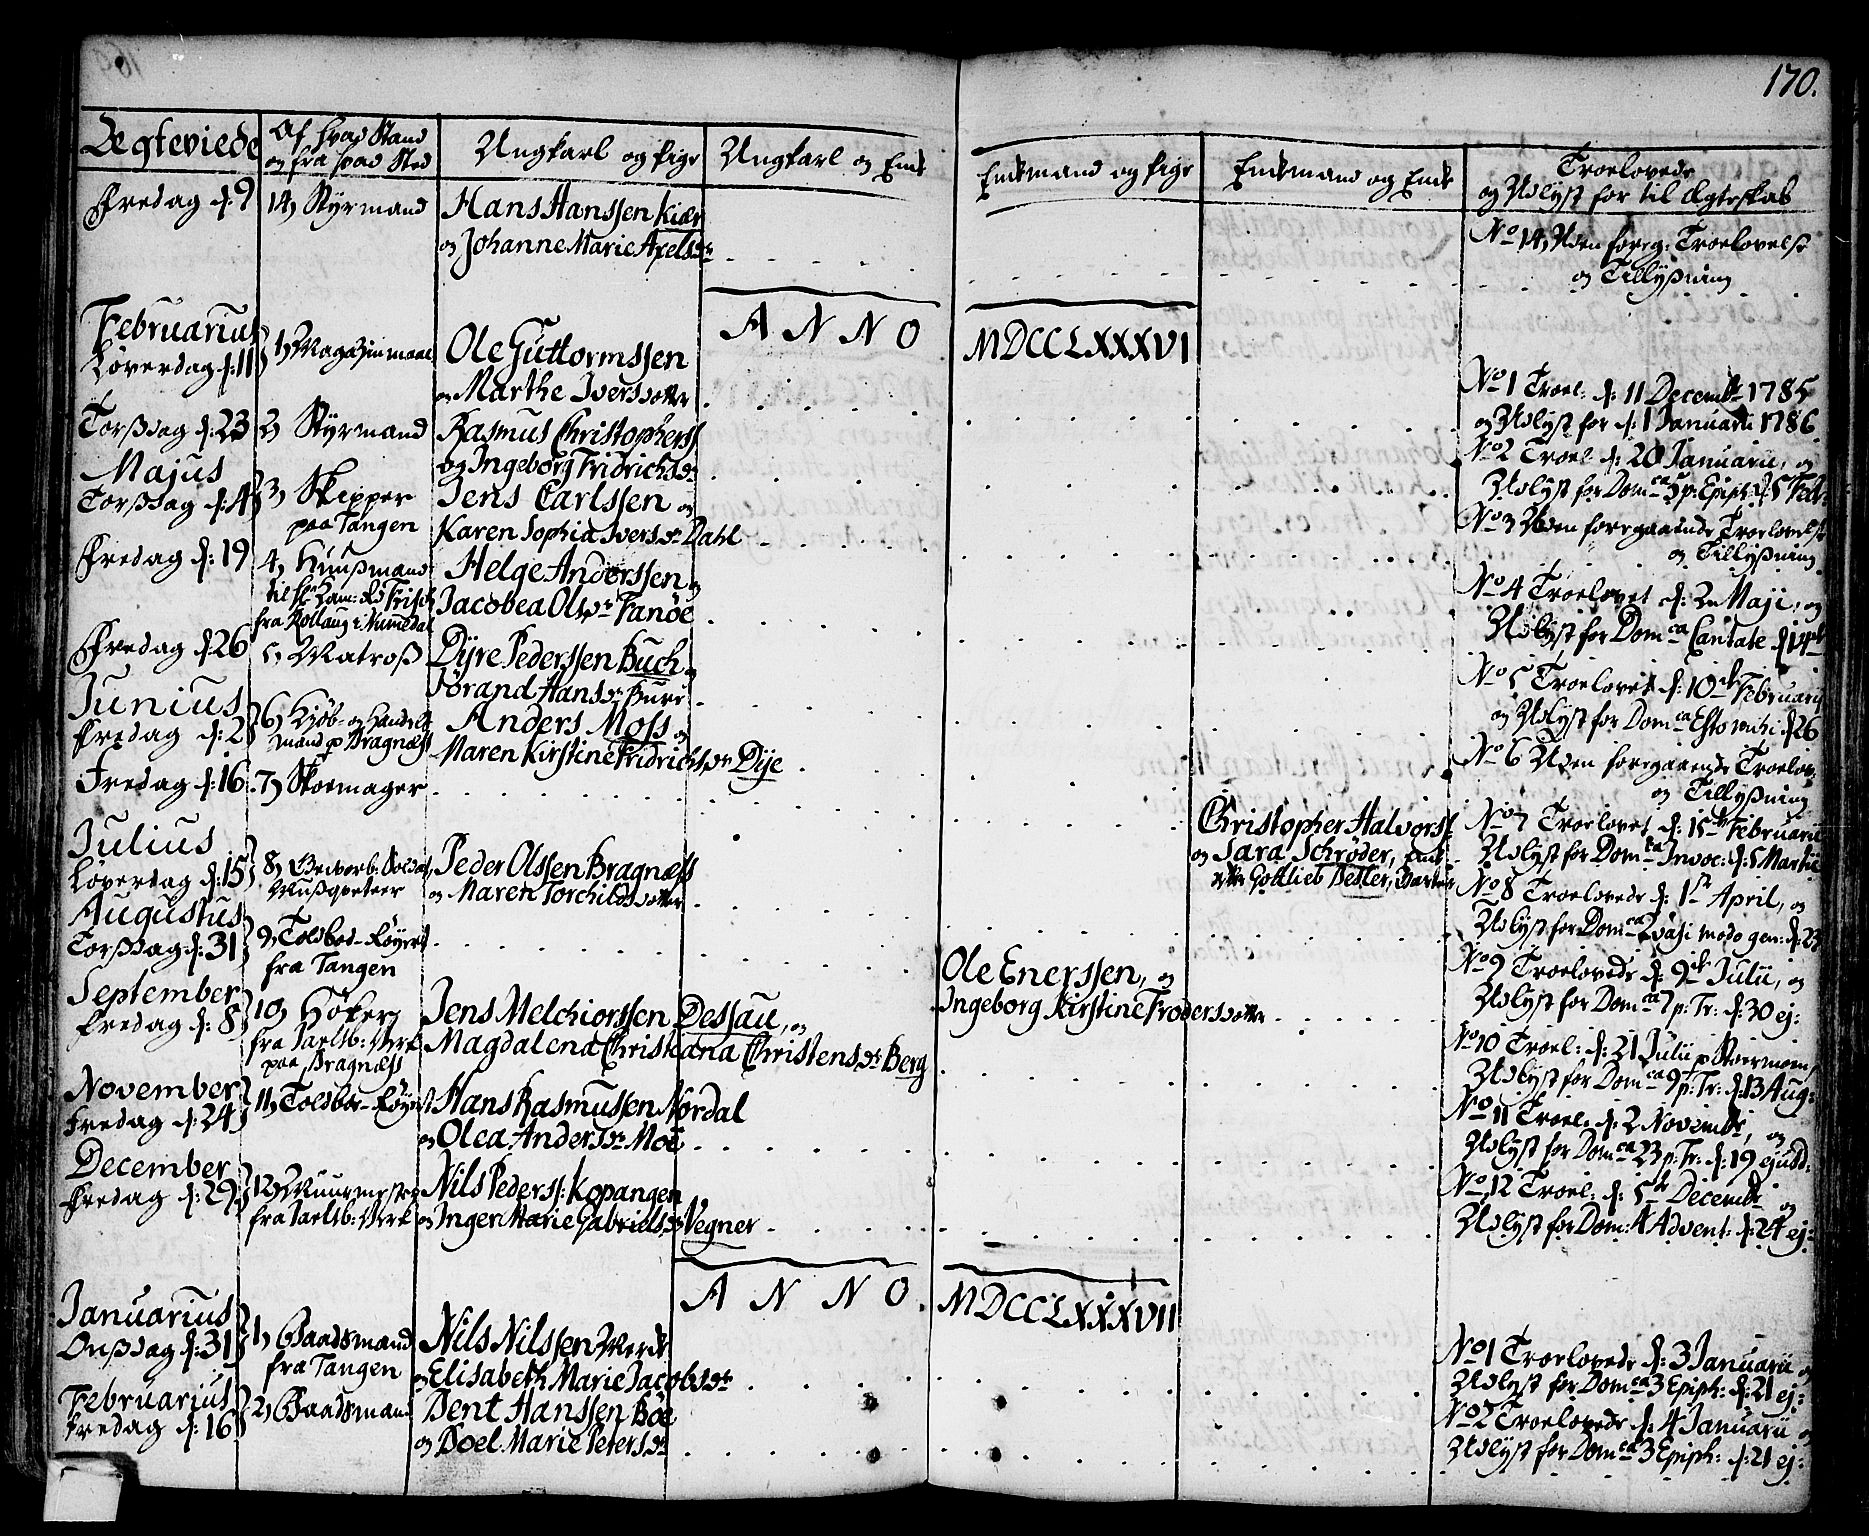 170.
Ægteviede
Af hvad Stand
og fra hvad Sted
Ungkarl og Pige
Ungkarl og Enke
Enkemand og Pige
Enkemand og Enke
Troelovede
og Udlyst for til Ægteskab
Fredag d: 9
14, Styrmand
Hans Hanssen Kiær
og Johanne Marie Axelsdr
No 14, Uden foreg: Troelovelse
og Tillysning
ANNO MDCCLXXXVI
Februarius
Løverdag d: 11
1, Magazinmand
Ole Guttormssen
og Marthe Iversdotter
No 1 Troel: d: 11 Decembr 1785
og Udlyst for d: 1 Januarii 1786
Torsdag d: 23
2, Styrmand
Rasmus Christopherss
og Ingeborg Fridrichsdr
No 2 Troel: d: 20 Januarii, og
Udlyst for Domca 5 p: Epiph: d: 5 Febr
Majus
Torsdag d: 4
3, Skipper
paa Tangen
Jens Carlssen og
Karen Sophia Iversdr Dahl
No 3 Uden foregaaende Troelovelse
og Tillysning
Fredag d: 19
4, Huusmand
fra Rollaug i Nummedal
Helge Anderssen og
Jacobea Olsdr Fanöe
No 4 Troelovet d: 2n Maji, og
Udlyst for Domca Cantate d: 14de
Fredag d: 26
5, Matros
Dyre Pederssen Buch og
Jörand Hansdr Bure
No 5 Troelovet d: 10de Februarij
og Udlyst for Domca Esto mihi d: 26
Junius
Fredag d: 2
6, Kjøb- og Handels
mand p Bragnæss
Anders Moss og
Maren Kirstine Fridrichsdr Dye
No 6 Uden foregaaende Troelov:
og Tillysning
Fredag d: 16
7, Skoemager
Christopher Halvorss:
og Sara Schrøder, Enke
efter Gotlieb Desler,
No 7 Troelovet d: 15de Februarii
Udlyst for Domca Invoc: d: 5 Martii
Julius
Løverdag d: 15
8, Gevorb: Soldat
Musqveteer
Peder Olssen Bragnæss
og Maren Torchildsdotter
No 8 Troelovede d: 1ste April, og
Udlyst for Domca Qvasi modo gen: d: 23
Augustus
Torsdag d: 31
9, Tolsbod-Røyert
fra Tangen
Ole Enerssen, og
Ingeborg Kirstine Trodersdotter
No 9 Troelovede d: 9de Julii, og
Udlyst for Domca 7 p: Tr: d: 30 ej:
September
Fredag d: 8
10, Höker
fra Jarlsb: Verk
paa Bragnæss
Jens Melchiorssen Dessau, og
Magdalena Christiana Christensdr Berg
No 10 Troel: d: 21 Julii p
Udlyst for Domca 9 p: Tr: d: 13 Aug:
November
Fredag d: 24
11, Tolsbod-Røyert
Hans Rasmussen Nordal
og Olea Andersdr Moe
No 11 Troel: d: 2 Novembr, og
Udlyst for Domca 23 p: Tr: d: 19 ejusd:
December
Fredag d: 29
12, Muurmester
fra Jarlsb: Verk
Nils Pederss: Kopangen
og Inger Marie Gabrielsdr Vegner
No 12 Troel: d: 5te Decembr og
Udlyst for Dom: 4 Advent: d: 24 ej:
ANNO MDCCLXXXVII
Januarius
Onsdag d: 31
1, Baadsmand
fra Tangen
Nils Nilssen Werk
og Elisabeth Marie Jacobsdr
No 1 Troelovede d: 3 Januarii og
Udlyst for Domca 3 Epiph: d: 21 ej:
Februarius
Fredag d: 16
2, Baadsmand
Bent Hanssen Böe
og Boel Marie Petersdr
No 2 Troelovede d: 4 Januarii og
Udlyst for Domca 3 Epiph: d: 21 ej: